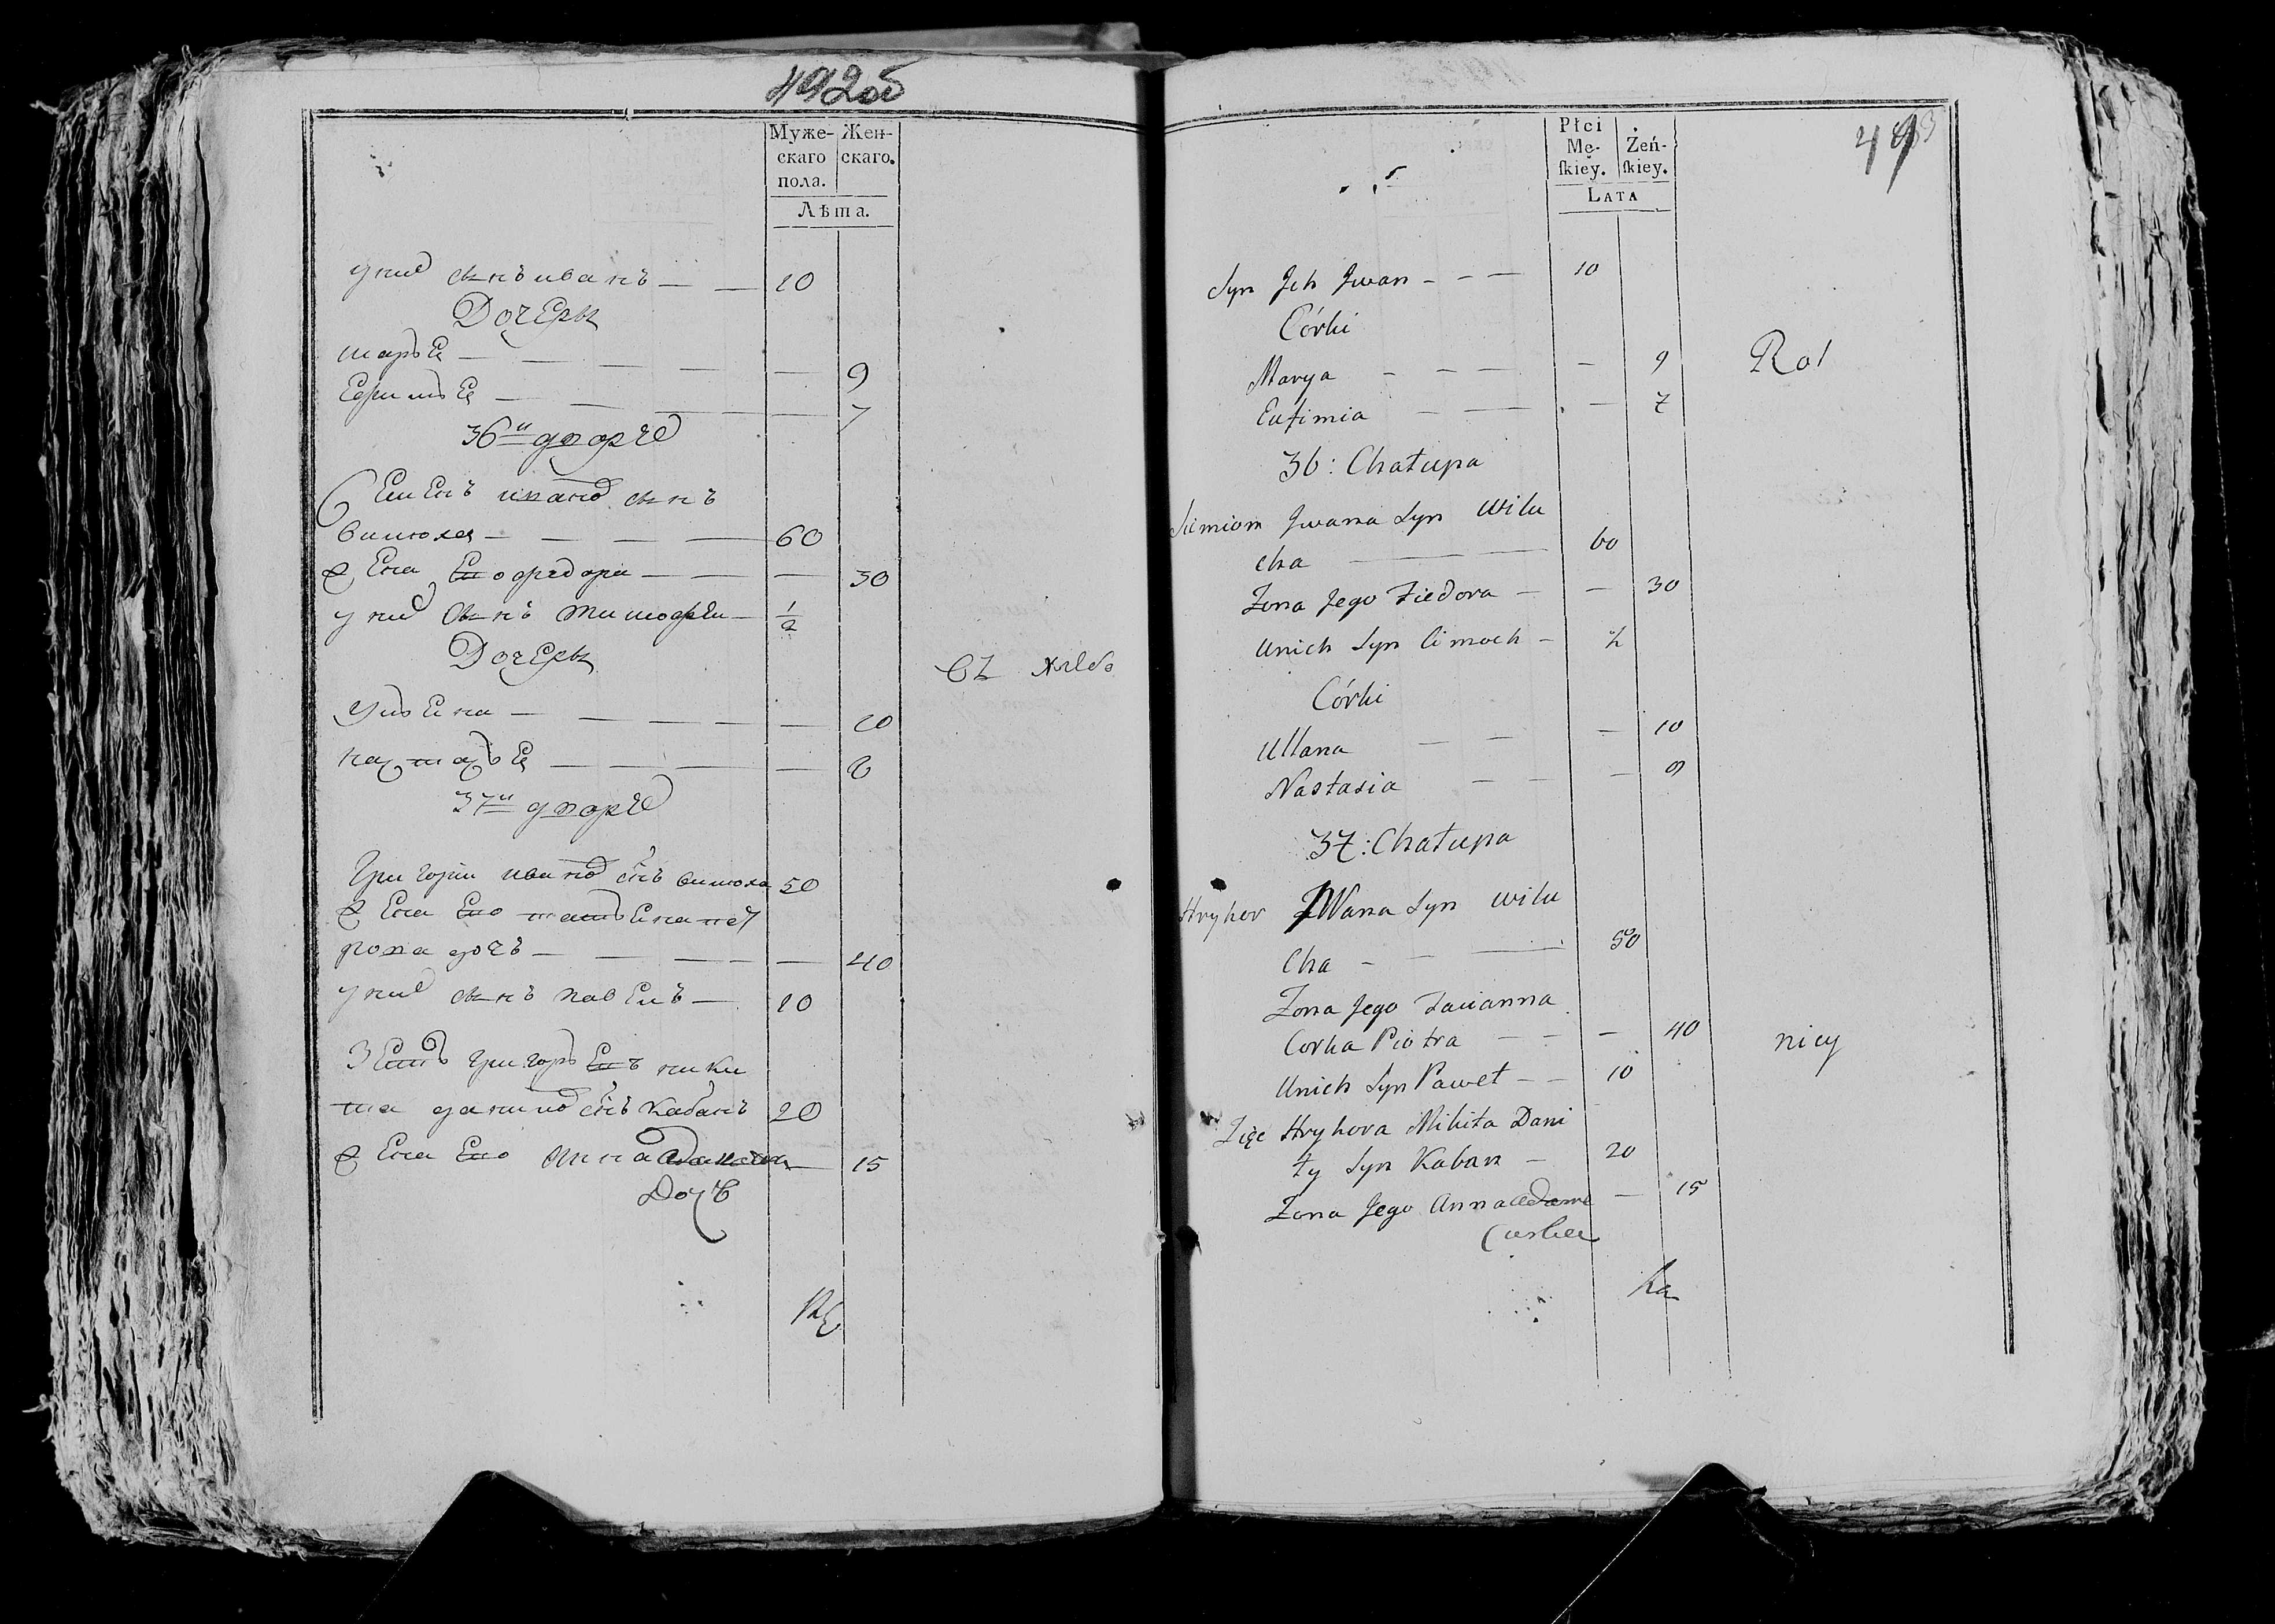 492об
Муже- Жен-
скаго скаго.
пола.
Лѣта.
у них сынъ иванъ — — 10
Дочеры
марья — — — — — 9
Ефимья — — — — — 7
36й дворъ
Семенъ иванов сынъ
вилюха — — — — 60
жена Его федора — — — 30
у них сынъ тимофей — 1/2
Дочеры
ульяна — — — — — 10
настасья — — — — — 8
37й дворъ
Григорий иванов снъ вилюха 50
жена Его татьяна пет
рова дочь — — — — — 40
у них сынъ павелъ — 10
Зеть григорьевъ ники
та данилов снъ Кабанъ 20
жена Его анна — 15
Дочь
Съ хлеба
Płci
Mę- Żeń-
ſkiey. ſkiey.
LATA
Syn Jch Jwan - - — 10
Córki
Marya - - — — — 9
Eufimia — — - — 7
36: Chałupa
Siemion Jwana Syn Wilu
cha — — 60
Zona Jego Fiedora — — 30
Unich Syn Cimoch - ½
Córki
Ullana — — — 10
Nastasia — — — 8
37: Chałupa
Hryhor JWana Syn Wilu
Cha - - — 50
Zona Jego Tacianna
Corka Piotra — — — 40
Unich Syn Paweł — — 10
Zięc Hryhora Mikita Dani
ły Syn Kaban — 20
Zona Jego Anna — 15
Corka
Ka
Rol
nicy